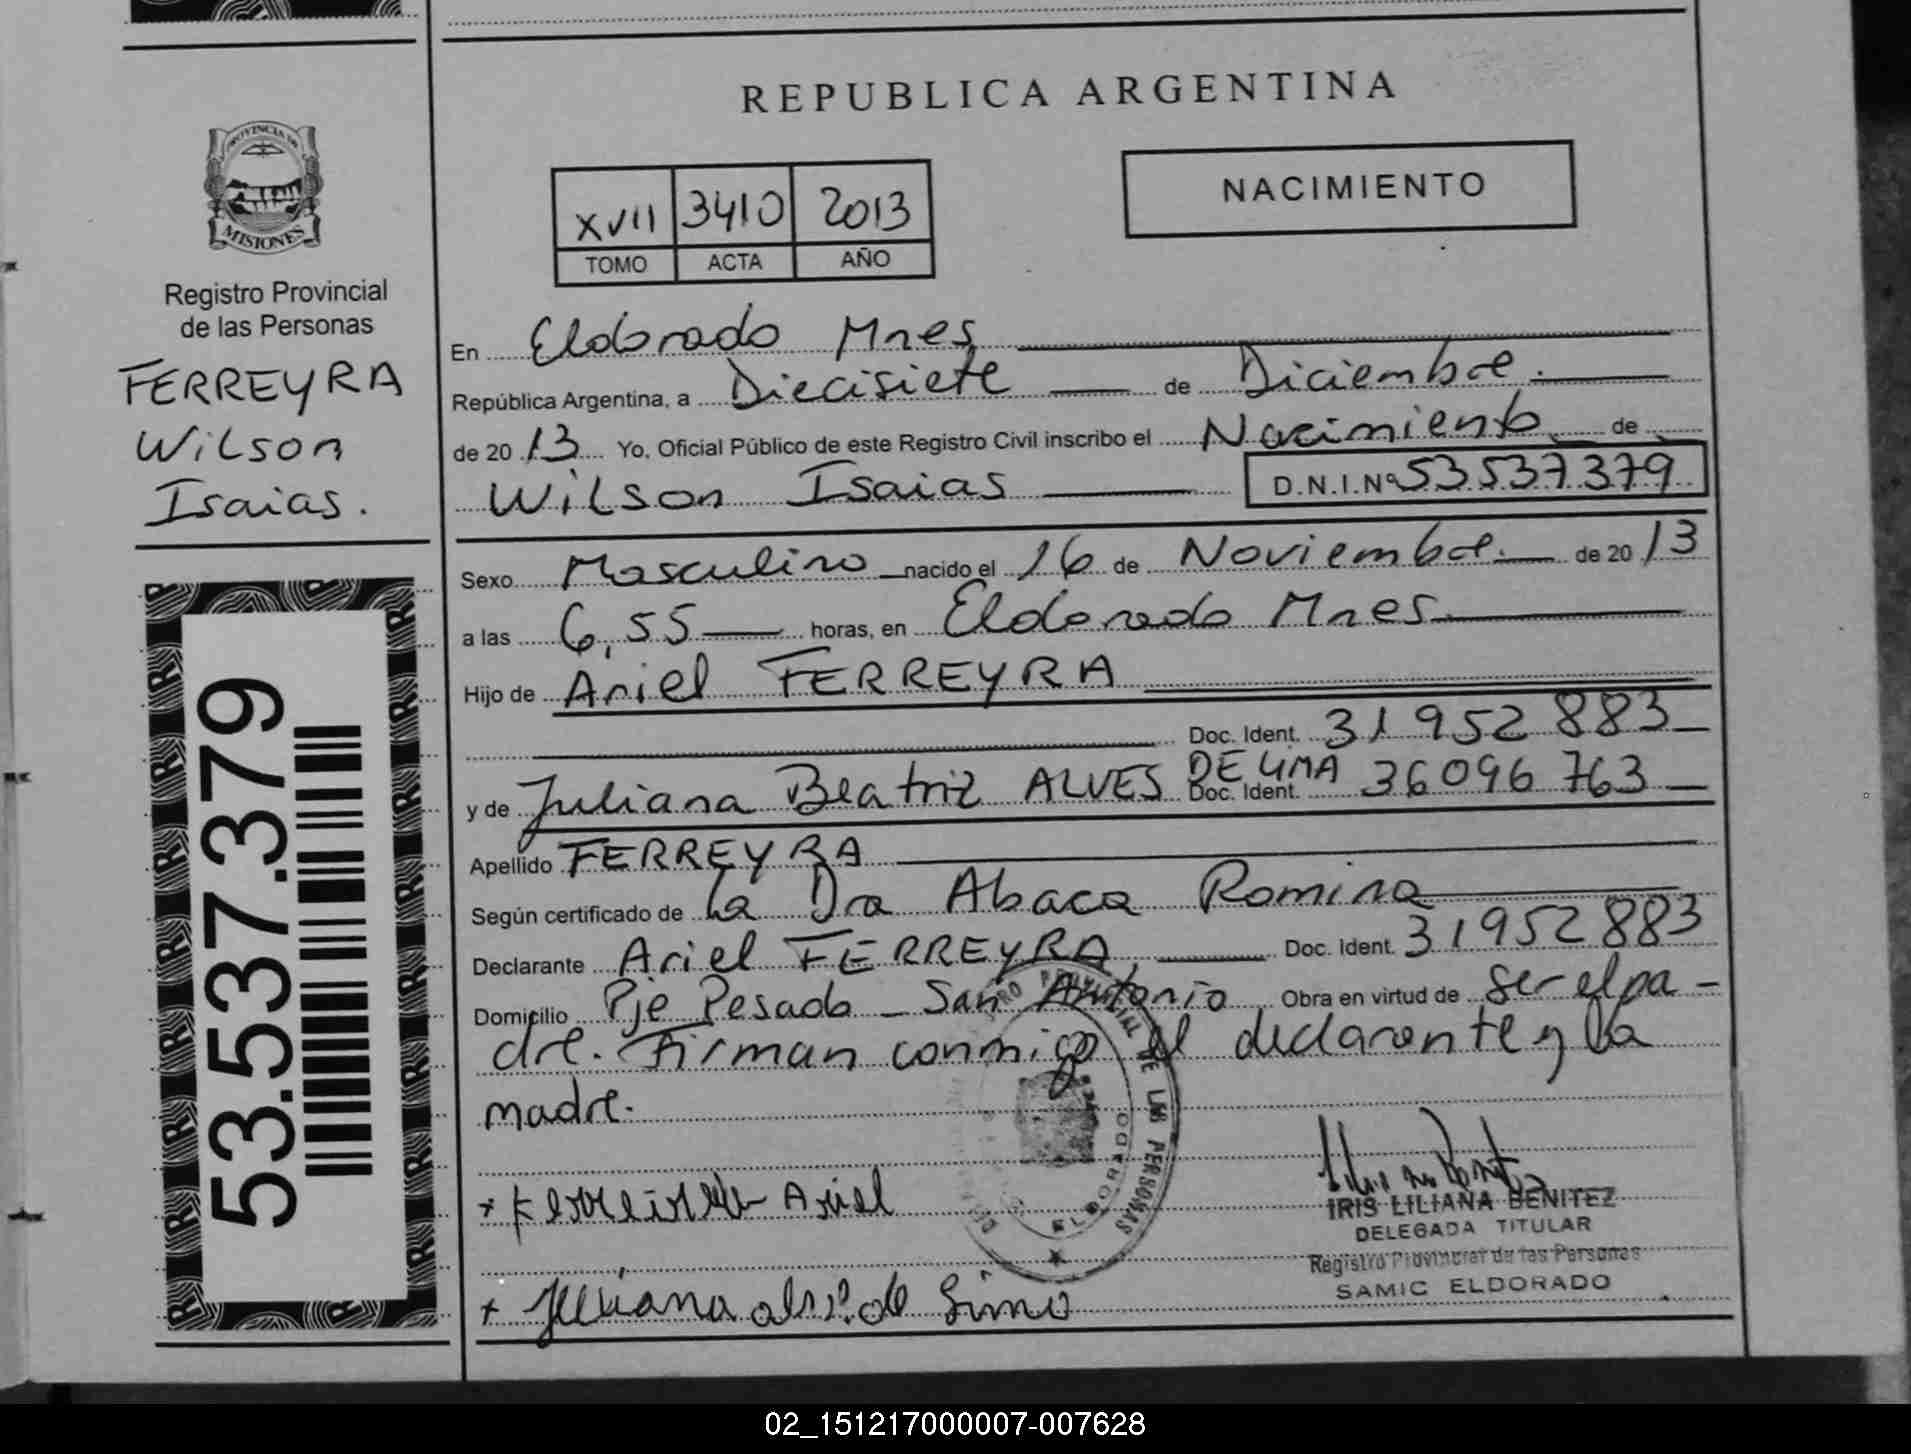 REPUBLICA ARGENTINA
PROVINCIA DE
MISIONES
Registro Provincial
de las Personas
FERREYRA
Wilson
Isaias.
53.537.379
XVII 3410 2013
TOMO ACTA AÑO
NACIMIENTO
En Eldorado Mnes
República Argentina, a Diecisiete de Diciembre.
de 20 13 Yo, Oficial Público de este Registro Civil inscribo el Nacimiento de
Wilson Isaias D.N.I.Nº 53.537.379
Sexo Masculino nacido el 16 de Noviembre. de 20 13
a las 6,55 horas, en Eldorado Mnes
Hijo de Ariel FERREYRA
Doc. Ident. 31952883
y de Juliana Beatriz ALVES DE LIMA Doc. Ident. 36096763
Apellido FERREYRA
Según certificado de la Dra Abaca Romina
Declarante Ariel FERREYRA, Doc. Ident. 31952883
Domicilio Pje Pesado - San Antonio Obra en virtud de ser el pa-
dre. Firman conmigo el declarante y la
madre.
PROVINCIAL DE LAS PERSONAS
ELDORADO
+ Ariel
+ Juliana
IRIS LILIANA BENITEZ
DELEGADA TITULAR
Registro Provincial de las Personas
SAMIC ELDORADO
02_151217000007-007628